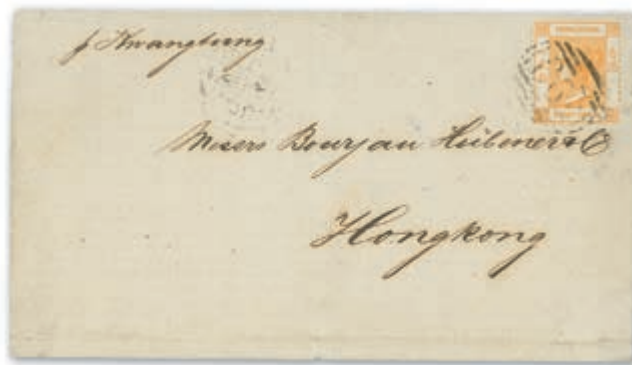 p Kwangtung
Messrs Bourjau Hübener & Co
Hongkong